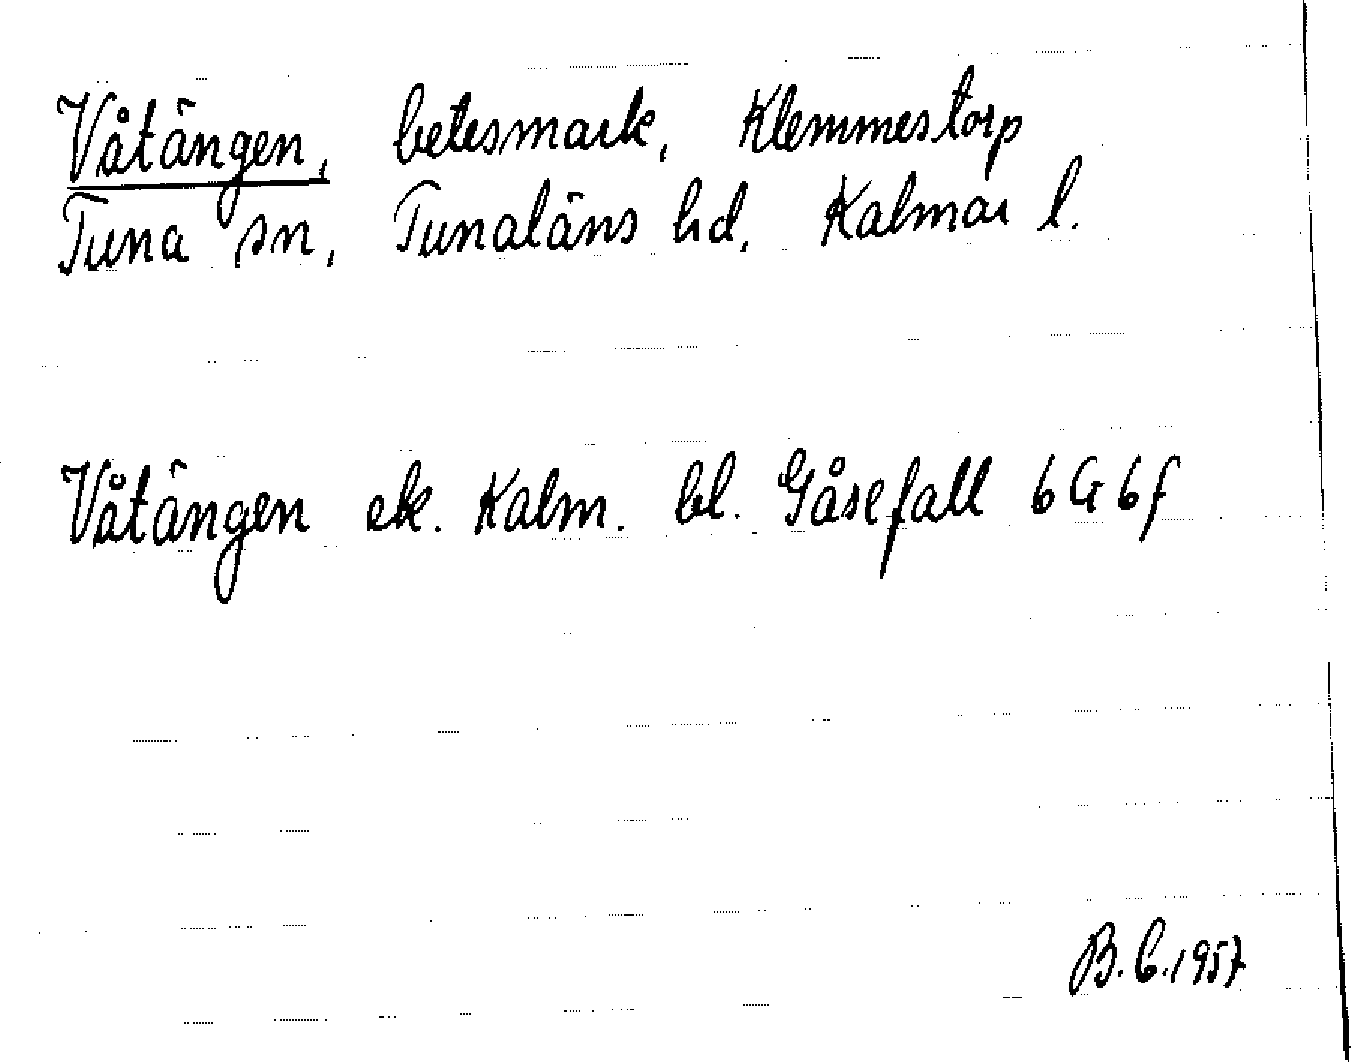 Våtängen, betesmark, Klemmestorp
Tuna sn, Tunaläns hd, Kalmar l.
Våtängen ek. Kalm. bl. Gåsefall 6G6f
B.C.1957